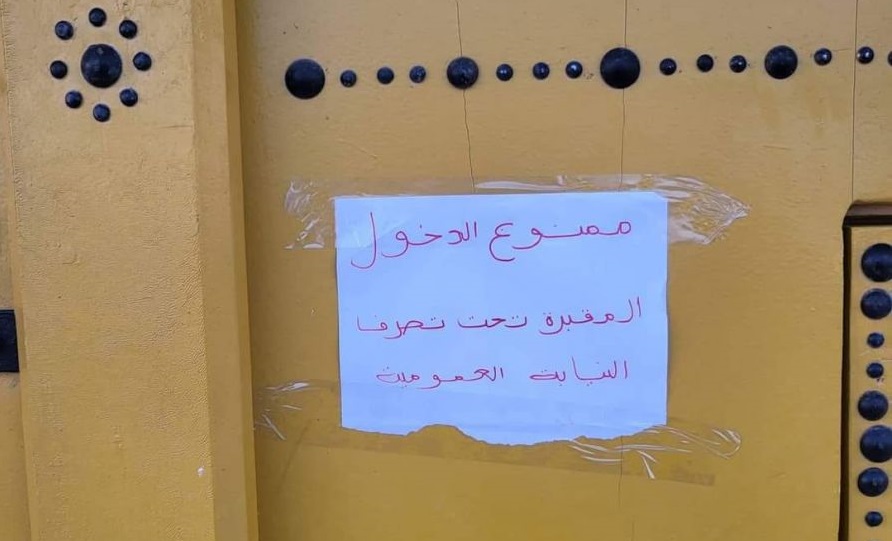 ممنوع الدخول
المقبرة تحت تصرف
النيابة العمومية